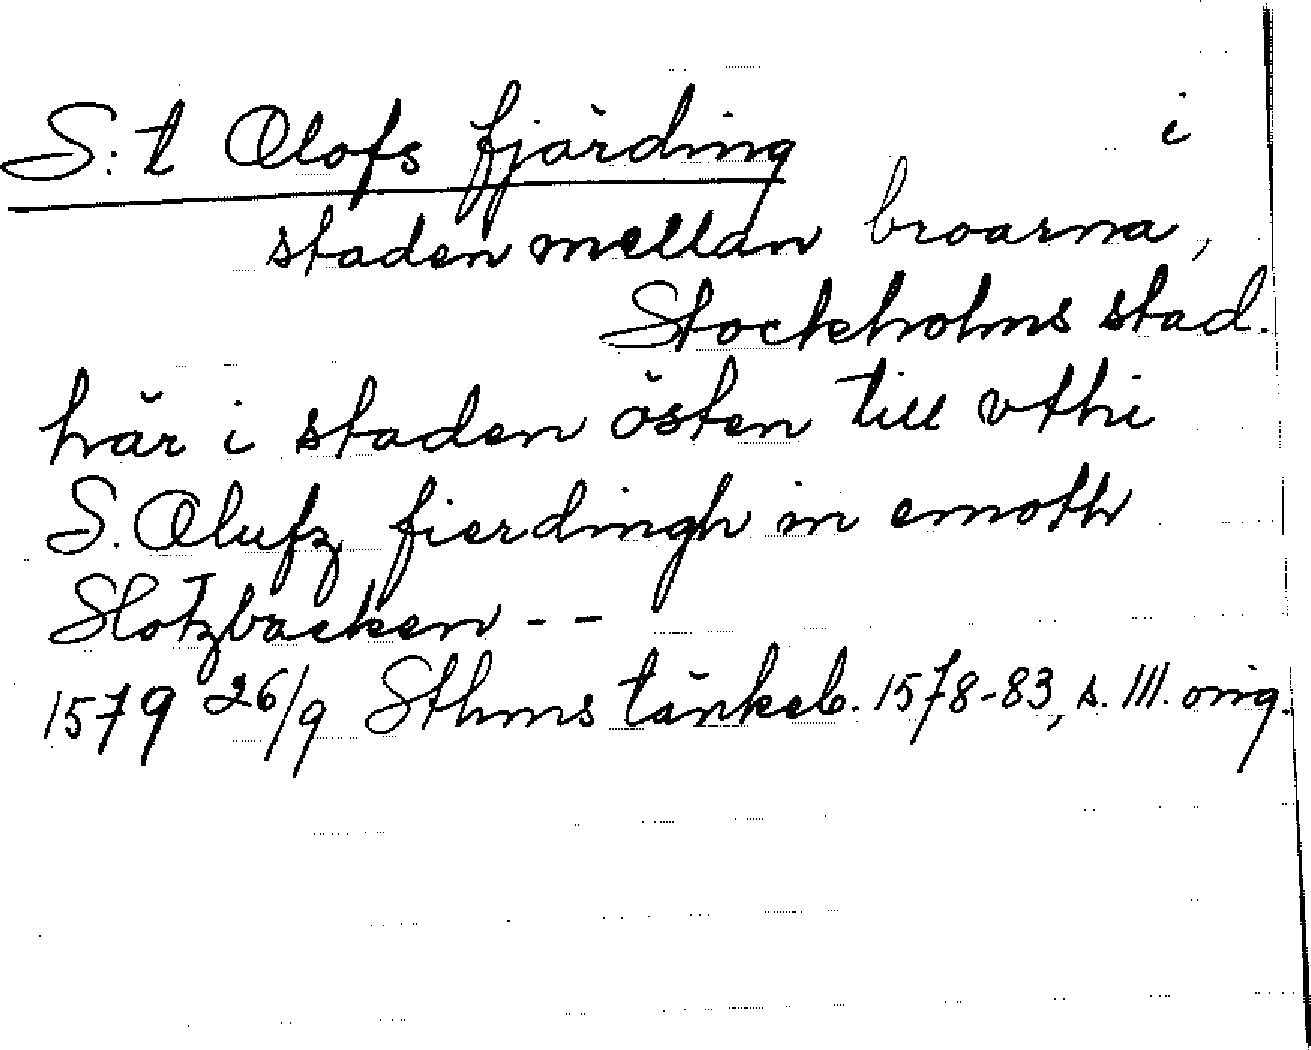 S:t Olofs fjärding i
staden mellan broarna,
Stockholms stad.
här i staden östen till vthi
S. Olufz fierdingh in emoth
Slotzbacken - -
1579 26/9 Sthms tänkeb. 1578-83, s. 111. orig.